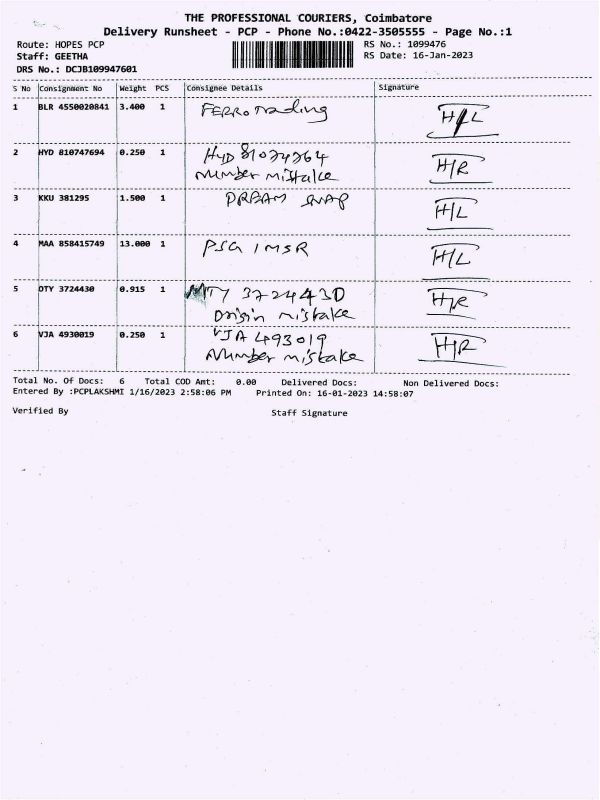 THE PROFESSIONAL COURIERS, Coimbatore
Delivery Runsheet - PCP - Phone No.:0422-3505555 - Page No.:1
Route: HOPES PCP RS No.: 1099476
Staff: GEETHA RS Date: 16-Jan-2023
DRS No.: DCJB109947601
S No Consignment No Weight PCS Consignee Details Signature
1 BLR 4550020841 3.400 1 FERRO Trading H/L
2 HYD 810747694 0.250 1 Hyd 81074764 H/R
Number mistake
3 KKU 381295 1.500 1 DREAM SNAP H/L
4 MAA 858415749 13.000 1 PSG IMSR H/L
5 OTY 3724430 0.915 1 MTY 3724430 H/R
Origin mistake
6 VJA 4930019 0.250 1 VJA 493019 H/R
Number mistake
Total No. Of Docs: 6 Total COD Amt: 0.00 Delivered Docs: Non Delivered Docs:
Entered By :PCPLAKSHMI 1/16/2023 2:58:06 PM Printed On: 16-01-2023 14:58:07
Verified By Staff Signature